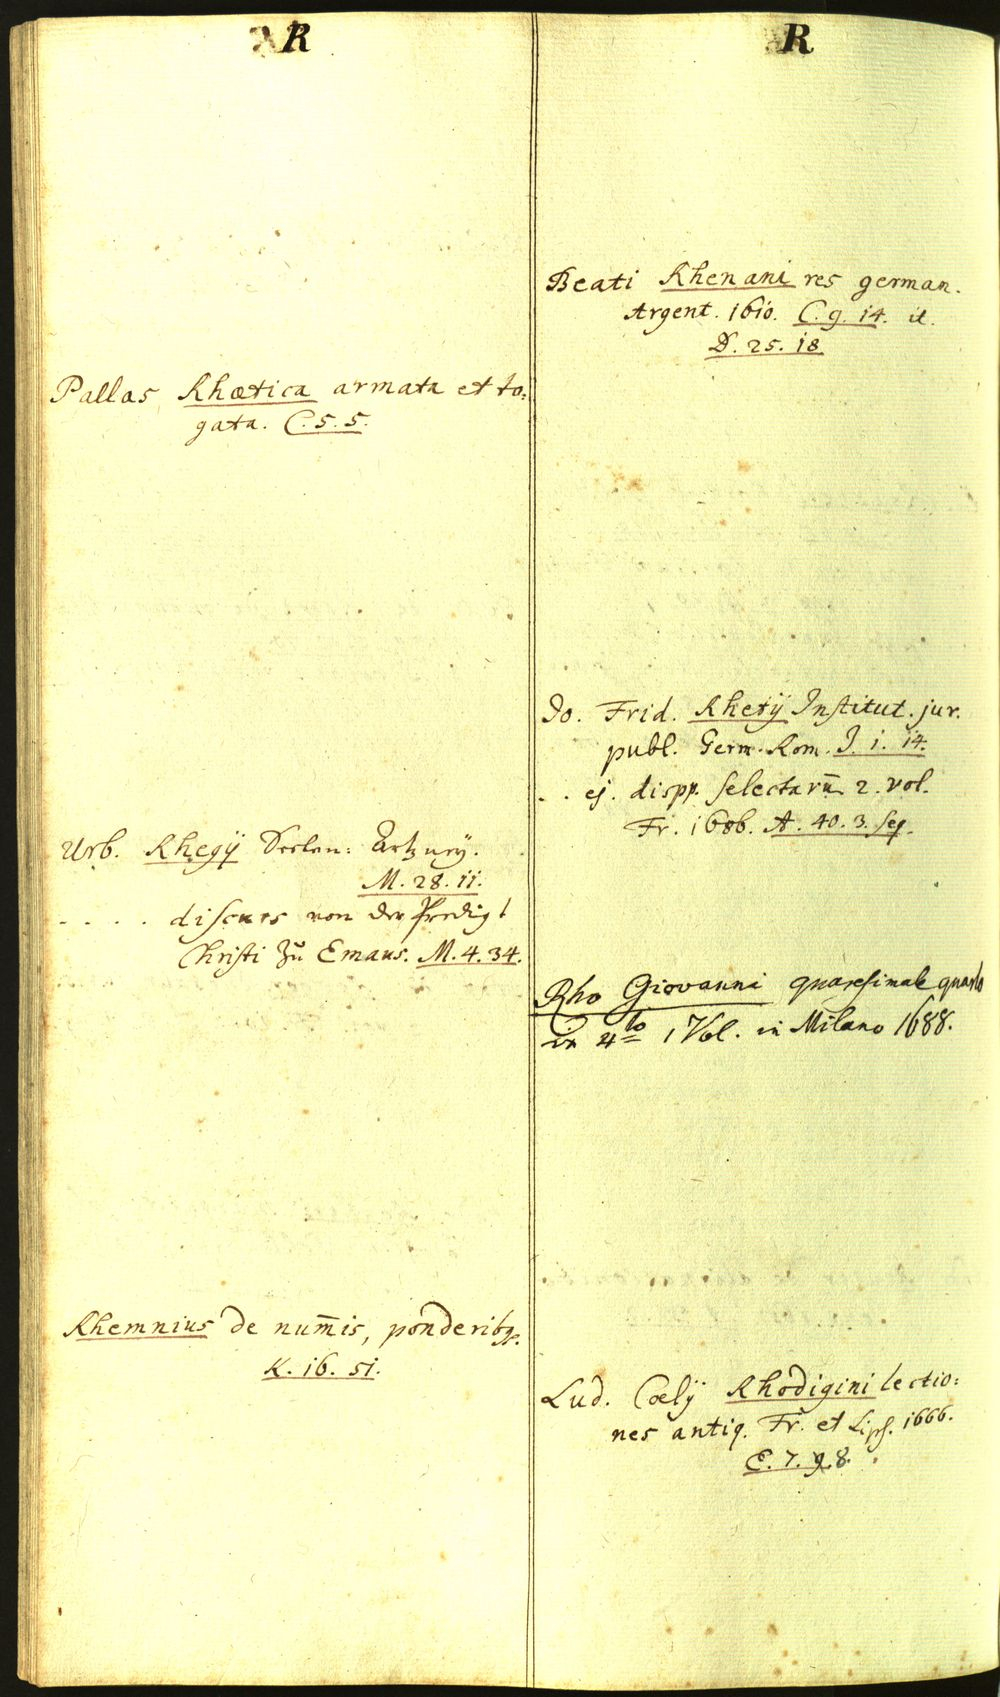 R
Pallas Rhætica armata et to:
gata. C. 5. 5.
Urb. Rhegij Seelen: Artzney.
M. 28. 11.
. . . . discurs von der Predigt
Christi zu Emaus. M. 4. 34.
Rhemnius de num̄is, ponderibq.
K. 16. 51.
R
Beati Rhenani res german.
Argent. 1610. C. 9. 14. it.
D. 25. 18
Jo. Frid. Rhetij Institut. jur.
publ. Germ. Rom. J. 1. 14.
. . ej. dispp. selectarū 2. vol.
Fr. 1686. A. 40. 3. seq.
Rho Giovanni quaresimale quarto
in 4to 1 Vol. in Milano 1688.
Lud. Cœlij Rhodigini lectio:
nes antiq. Fr. et Lips. 1666.
E. 7. 8.